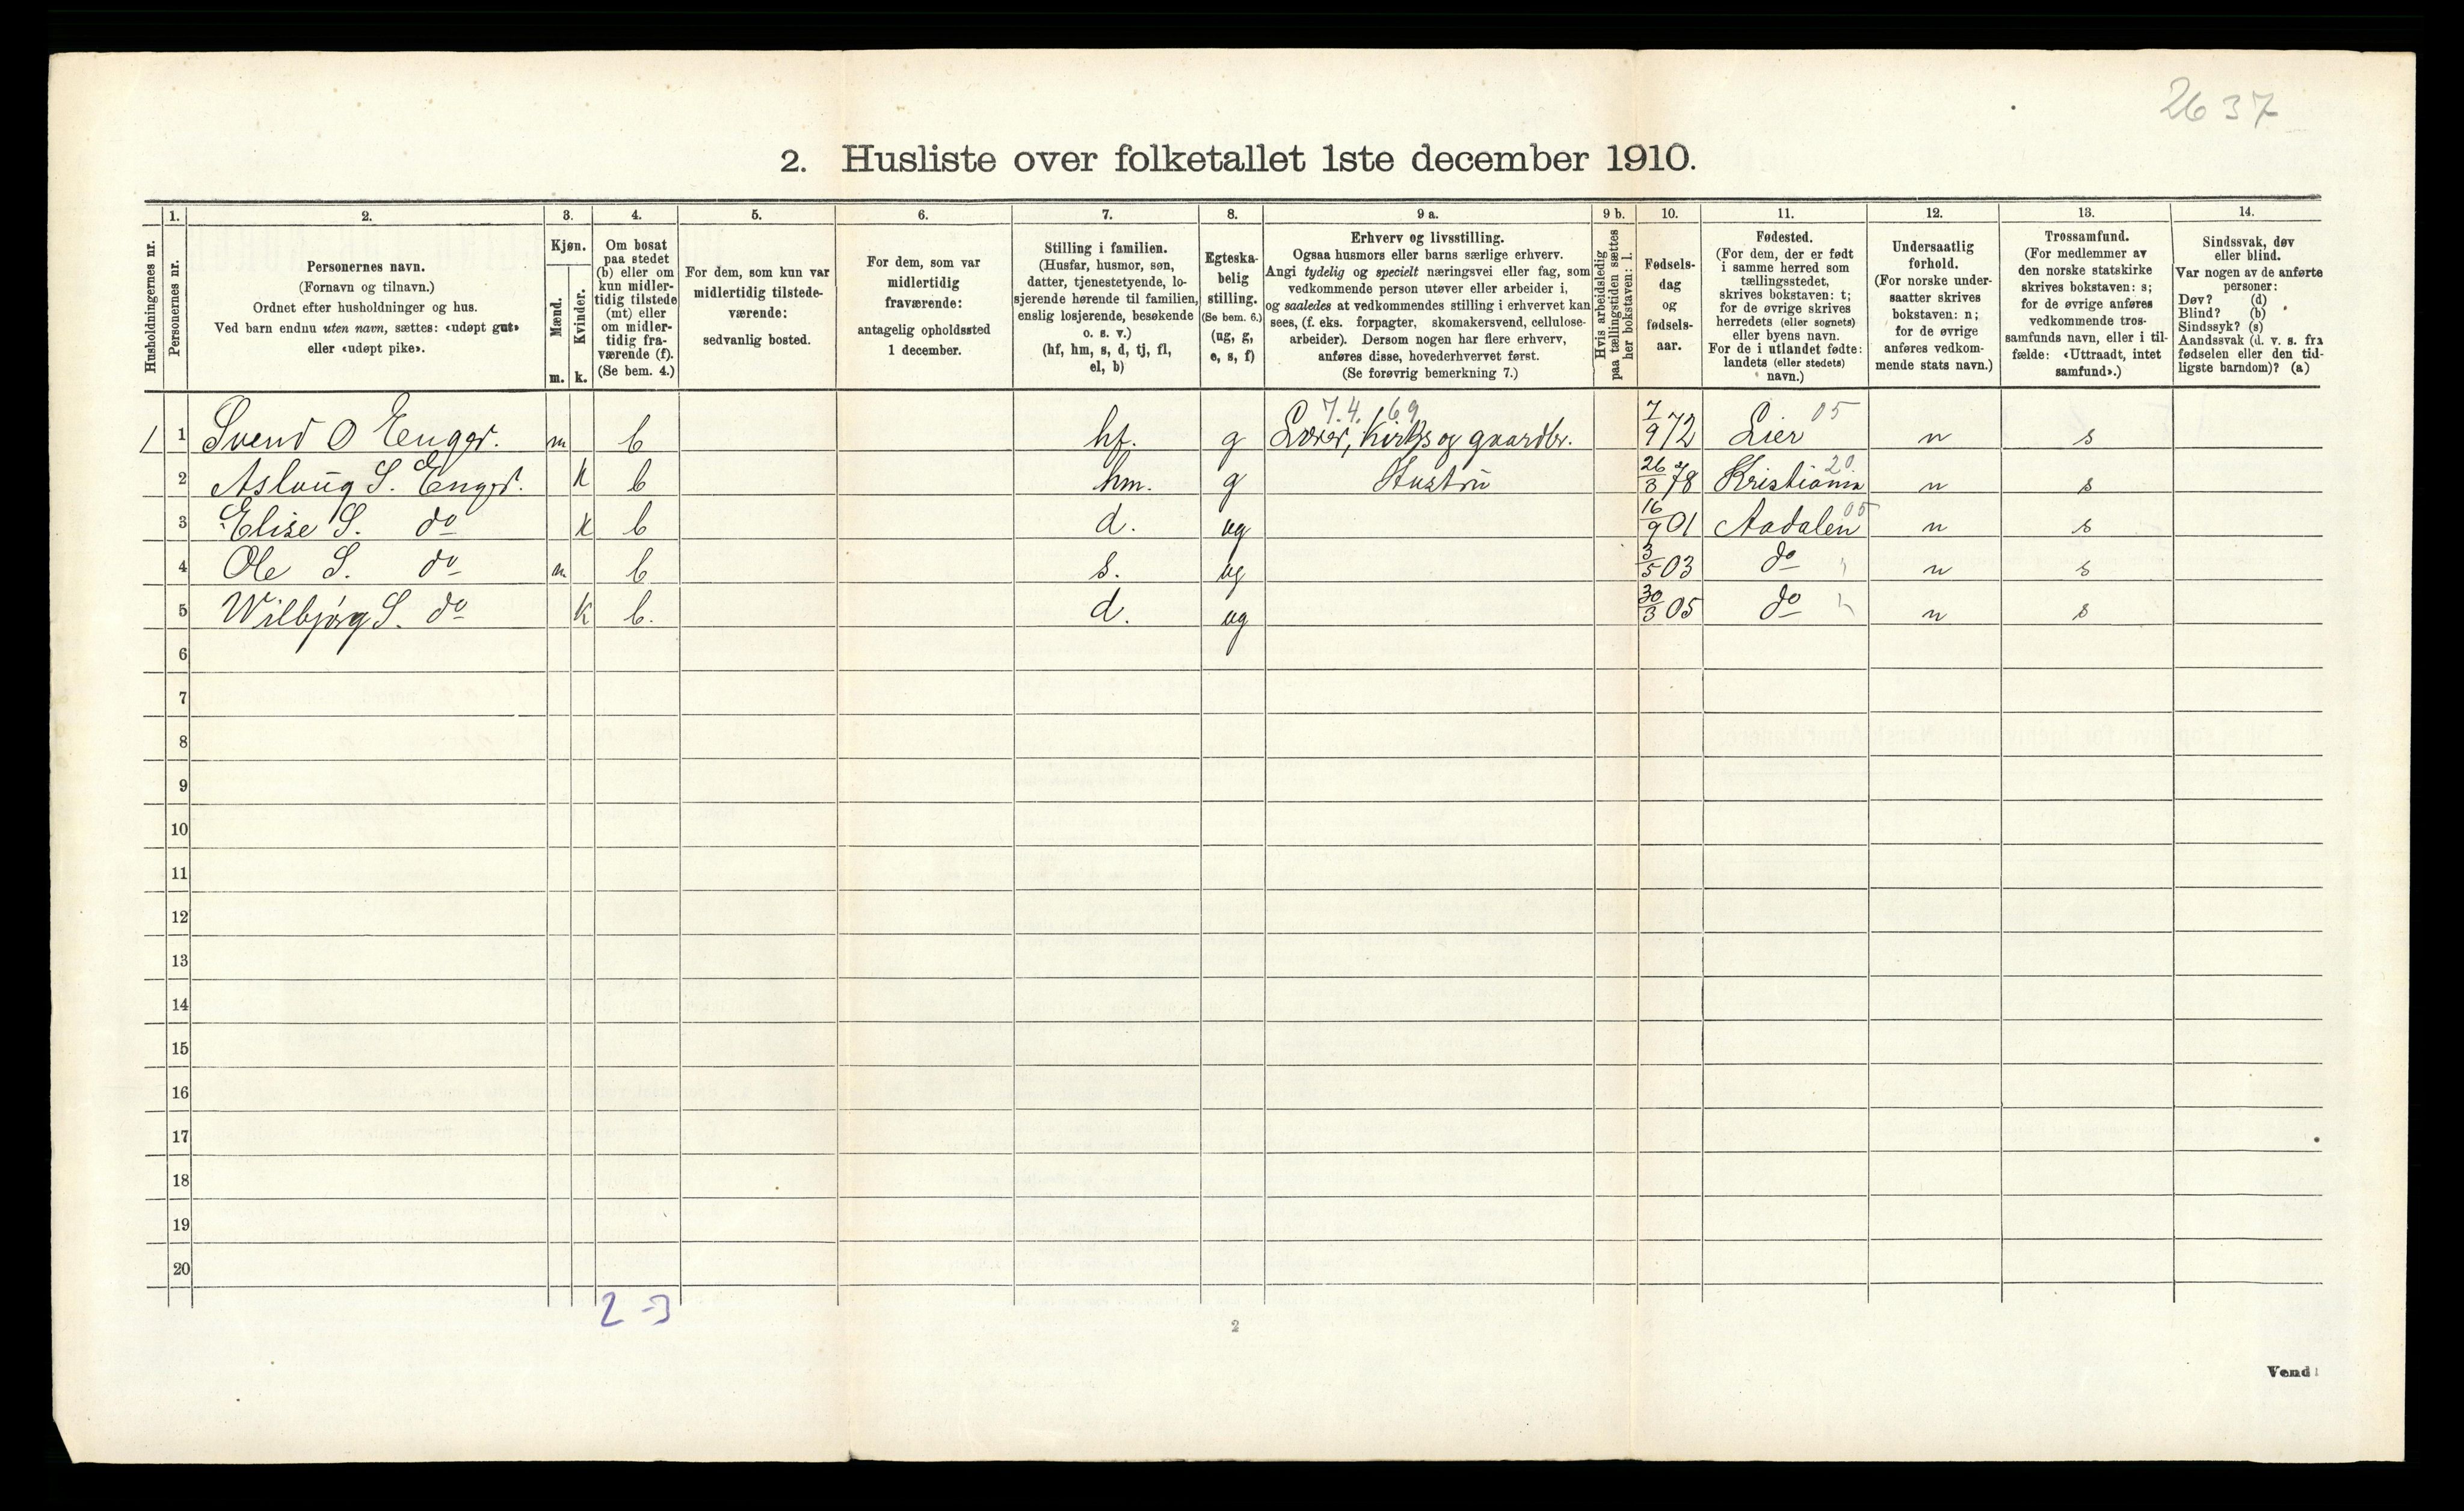 2637
2. Husliste over folketallet 1ste december 1910.
Husholdningernes nr.
1. Personernes nr.
2. Personernes navn.
(Fornavn og tilnavn.)
Ordnet efter husholdninger og hus.
Ved barn endnu uten navn, sættes: «udøpt gut»
eller «udøpt pike».
3. Kjøn.
Mænd. m.
Kvinder. k.
4. Om bosat
paa stedet
(b) eller om
kun midler-
tidig tilstede
(mt) eller
om midler-
tidig fra-
værende (f).
(Se bem. 4.)
5. For dem, som kun var
midlertidig tilstede-
værende:
sedvanlig bosted.
6. For dem, som var
midlertidig
fraværende:
antagelig opholdssted
1 december.
7. Stilling i familien.
(Husfar, husmor, søn,
datter, tjenestetyende, lo-
sjerende hørende til familien,
enslig losjerende, besøkende
o. s. v.)
(hf, hm, s, d, tj, fl,
el, b)
8. Egteska-
belig
stilling.
(Se bem. 6.)
(ug, g,
e, s, f)
9 a. Erhverv og livsstilling.
Ogsaa husmors eller barns særlige erhverv.
Angi tydelig og specielt næringsvei eller fag, som
vedkommende person utøver eller arbeider i,
og saaledes at vedkommendes stilling i erhvervet kan
sees, (f. eks. forpagter, skomakersvend, cellulose-
arbeider). Dersom nogen har flere erhverv,
anføres disse, hovederhvervet først.
(Se forøvrig bemerkning 7.)
9 b. Hvis arbeidsledig
paa tællingstiden sættes
her bokstaven: l.
10. Fødsels-
dag
og
fødsels-
aar.
11. Fødested.
(For dem, der er født
i samme herred som
tællingsstedet,
skrives bokstaven: t;
for de øvrige skrives
herredets (eller sognets)
eller byens navn.
For de i utlandet fødte:
landets (eller stedets)
navn.)
12. Undersaatlig
forhold.
(For norske under-
saatter skrives
bokstaven: n;
for de øvrige
anføres vedkom-
mende stats navn.)
13. Trossamfund.
(For medlemmer av
den norske statskirke
skrives bokstaven: s;
for de øvrige anføres
vedkommende tros-
samfunds navn, eller i til-
fælde: «Uttraadt, intet
samfund».)
14. Sindssvak, døv
eller blind.
Var nogen av de anførte
personer:
Døv? (d)
Blind? (b)
Sindssyk? (s)
Aandssvak (d. v. s. fra
fødselen eller den tid-
ligste barndom)? (a)
7.4. 69 05
1 1 Svend O Enger. m b hf. g Lærer, Kirkjs og gaardbr. 7/9 72 Lier n s
20
2 Aslaug S. Enger. k b hm. g Hustru 26/3 78 Kristiania n s
05
3 Elise S. do k b d. ug 16/9 01 Aadalen n s
4 Ole S. do m b s. ug 3/5 03 do n s
5 Wilbjørg S. do k b. d. ug 30/3 05 do n s
6
7
8
9
10
11
12
13
14
15
16
17
18
19
20
2 - 3
2
Vend!